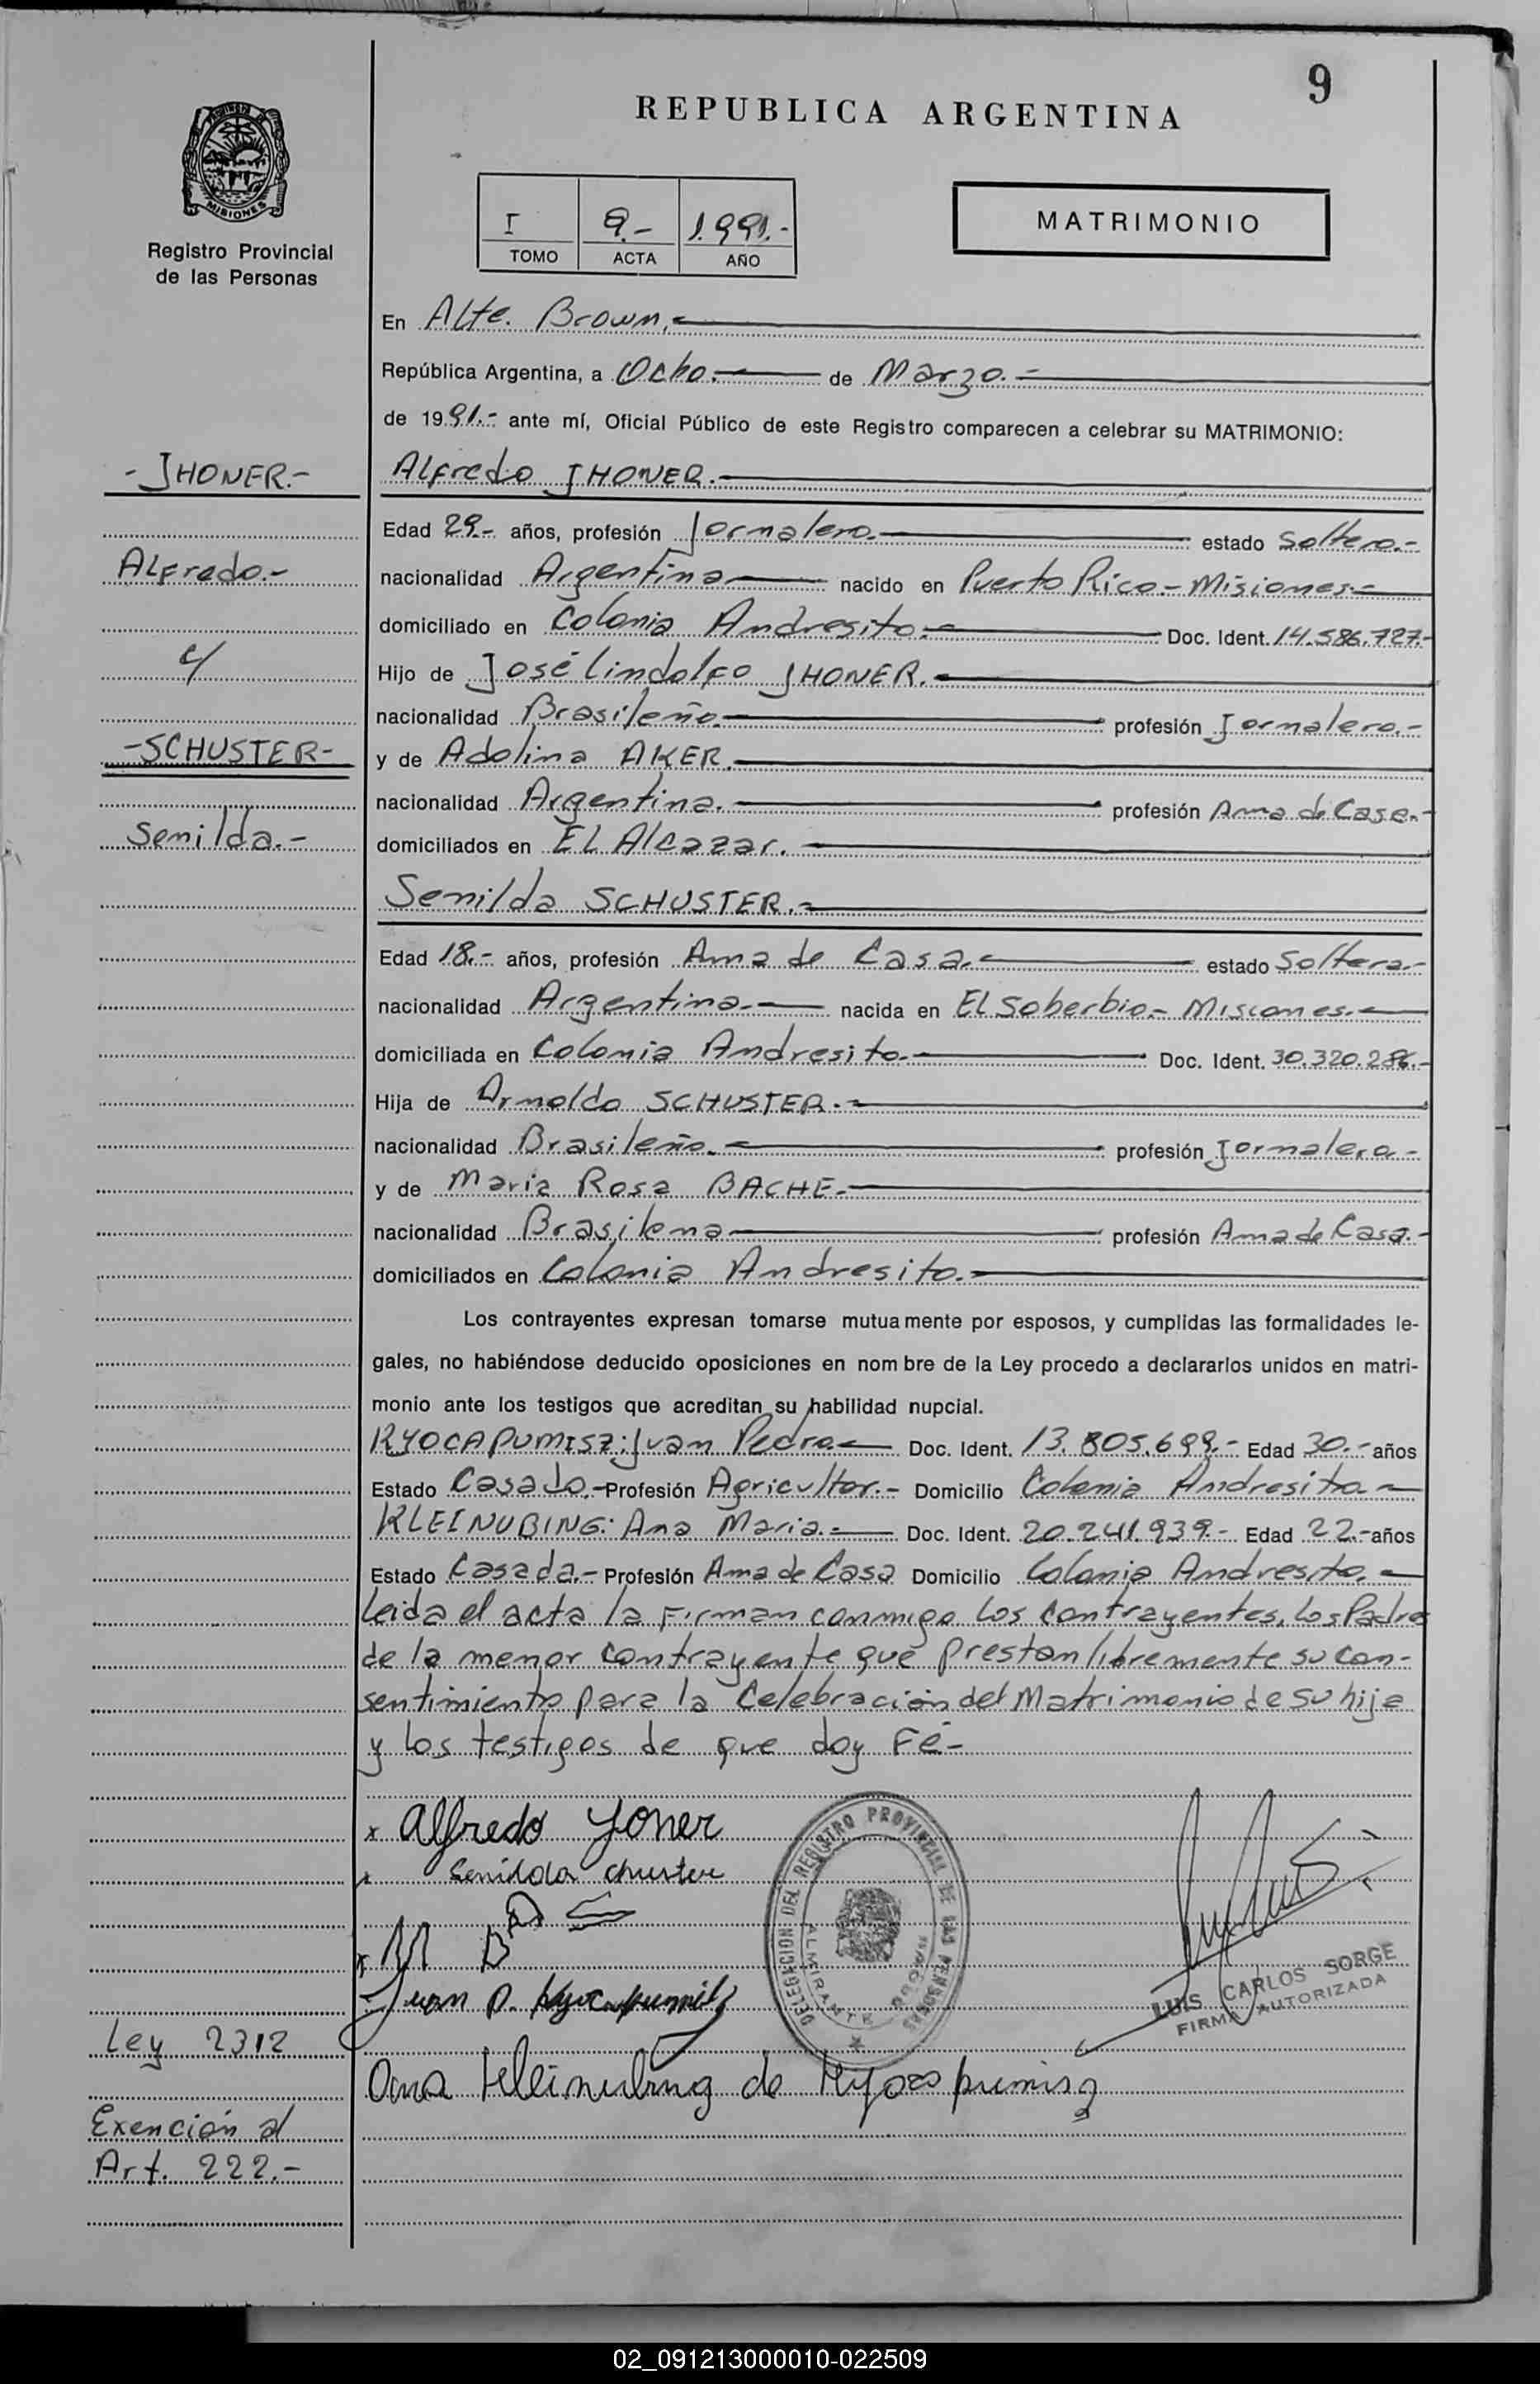 9
REPUBLICA ARGENTINA
MISIONES
Registro Provincial
de las Personas
I 9.- 1.991.-
TOMO ACTA AÑO
MATRIMONIO
En Alte. Brown.-
República Argentina, a Ocho.- de Marzo.-
de 1991.- ante mí, Oficial Público de este Registro comparecen a celebrar su MATRIMONIO:
-JHONER.-
Alfredo JHONER.-
Edad 29.- años, profesión Jornalero.- estado Soltero.-
Alfredo.-
nacionalidad Argentina nacido en Puerto Rico.- Misiones.-
domiciliado en Colonia Andresito.- Doc. Ident. 14.586.727.-
c/
Hijo de José Lindolfo JHONER.-
nacionalidad Brasileño.- profesión Jornalero.-
-SCHUSTER-
y de Adolina AKER.-
nacionalidad Argentina.- profesión Ama de Casa.-
Senilda.-
domiciliados en El Alcazar.-
Senilda SCHUSTER.-
Edad 18.- años, profesión Ama de Casa.- estado Soltera-
nacionalidad Argentina.- nacida en El Soberbio.- Misiones.-
domiciliada en Colonia Andresito.- Doc. Ident. 30.320.286.-
Hija de Arnoldo SCHUSTER.-
nacionalidad Brasileño.- profesión Jornalero-
y de Maria Rosa BACHE.-
nacionalidad Brasilena profesión Ama de Casa.-
domiciliados en Colonia Andresito.-
Los contrayentes expresan tomarse mutuamente por esposos, y cumplidas las formalidades le-
gales, no habiéndose deducido oposiciones en nombre de la Ley procedo a declararlos unidos en matri-
monio ante los testigos que acreditan su habilidad nupcial.
KYOCAPUMISZ: Juan Pedro.- Doc. Ident. 13.805.699.- Edad 30.- años
Estado Casado.- Profesión Agricultor.- Domicilio Colonia Andresito.-
KLEINUBING: Ana Maria.- Doc. Ident. 20.241.939.- Edad 22.- años
Estado Casada.- Profesión Ama de Casa Domicilio Colonia Andresito.-
Leida el acta la Firman conmigo los contrayentes, los Padres
de la menor contrayente que prestan libremente su con-
sentimiento para la Celebración del Matrimonio de su hija
y los testigos de que doy Fé-
x Alfredo Yoner
x Senilda chuster
Juan P.
Ana Kleinubing de
DELEGACION DEL REGISTRO PROVINCIAL DE LAS PERSONAS
ALMIRANTE BROWN
LUIS CARLOS SORGE
FIRMA AUTORIZADA
Ley 2312
Exención al
Art. 222.-
02_091213000010-022509